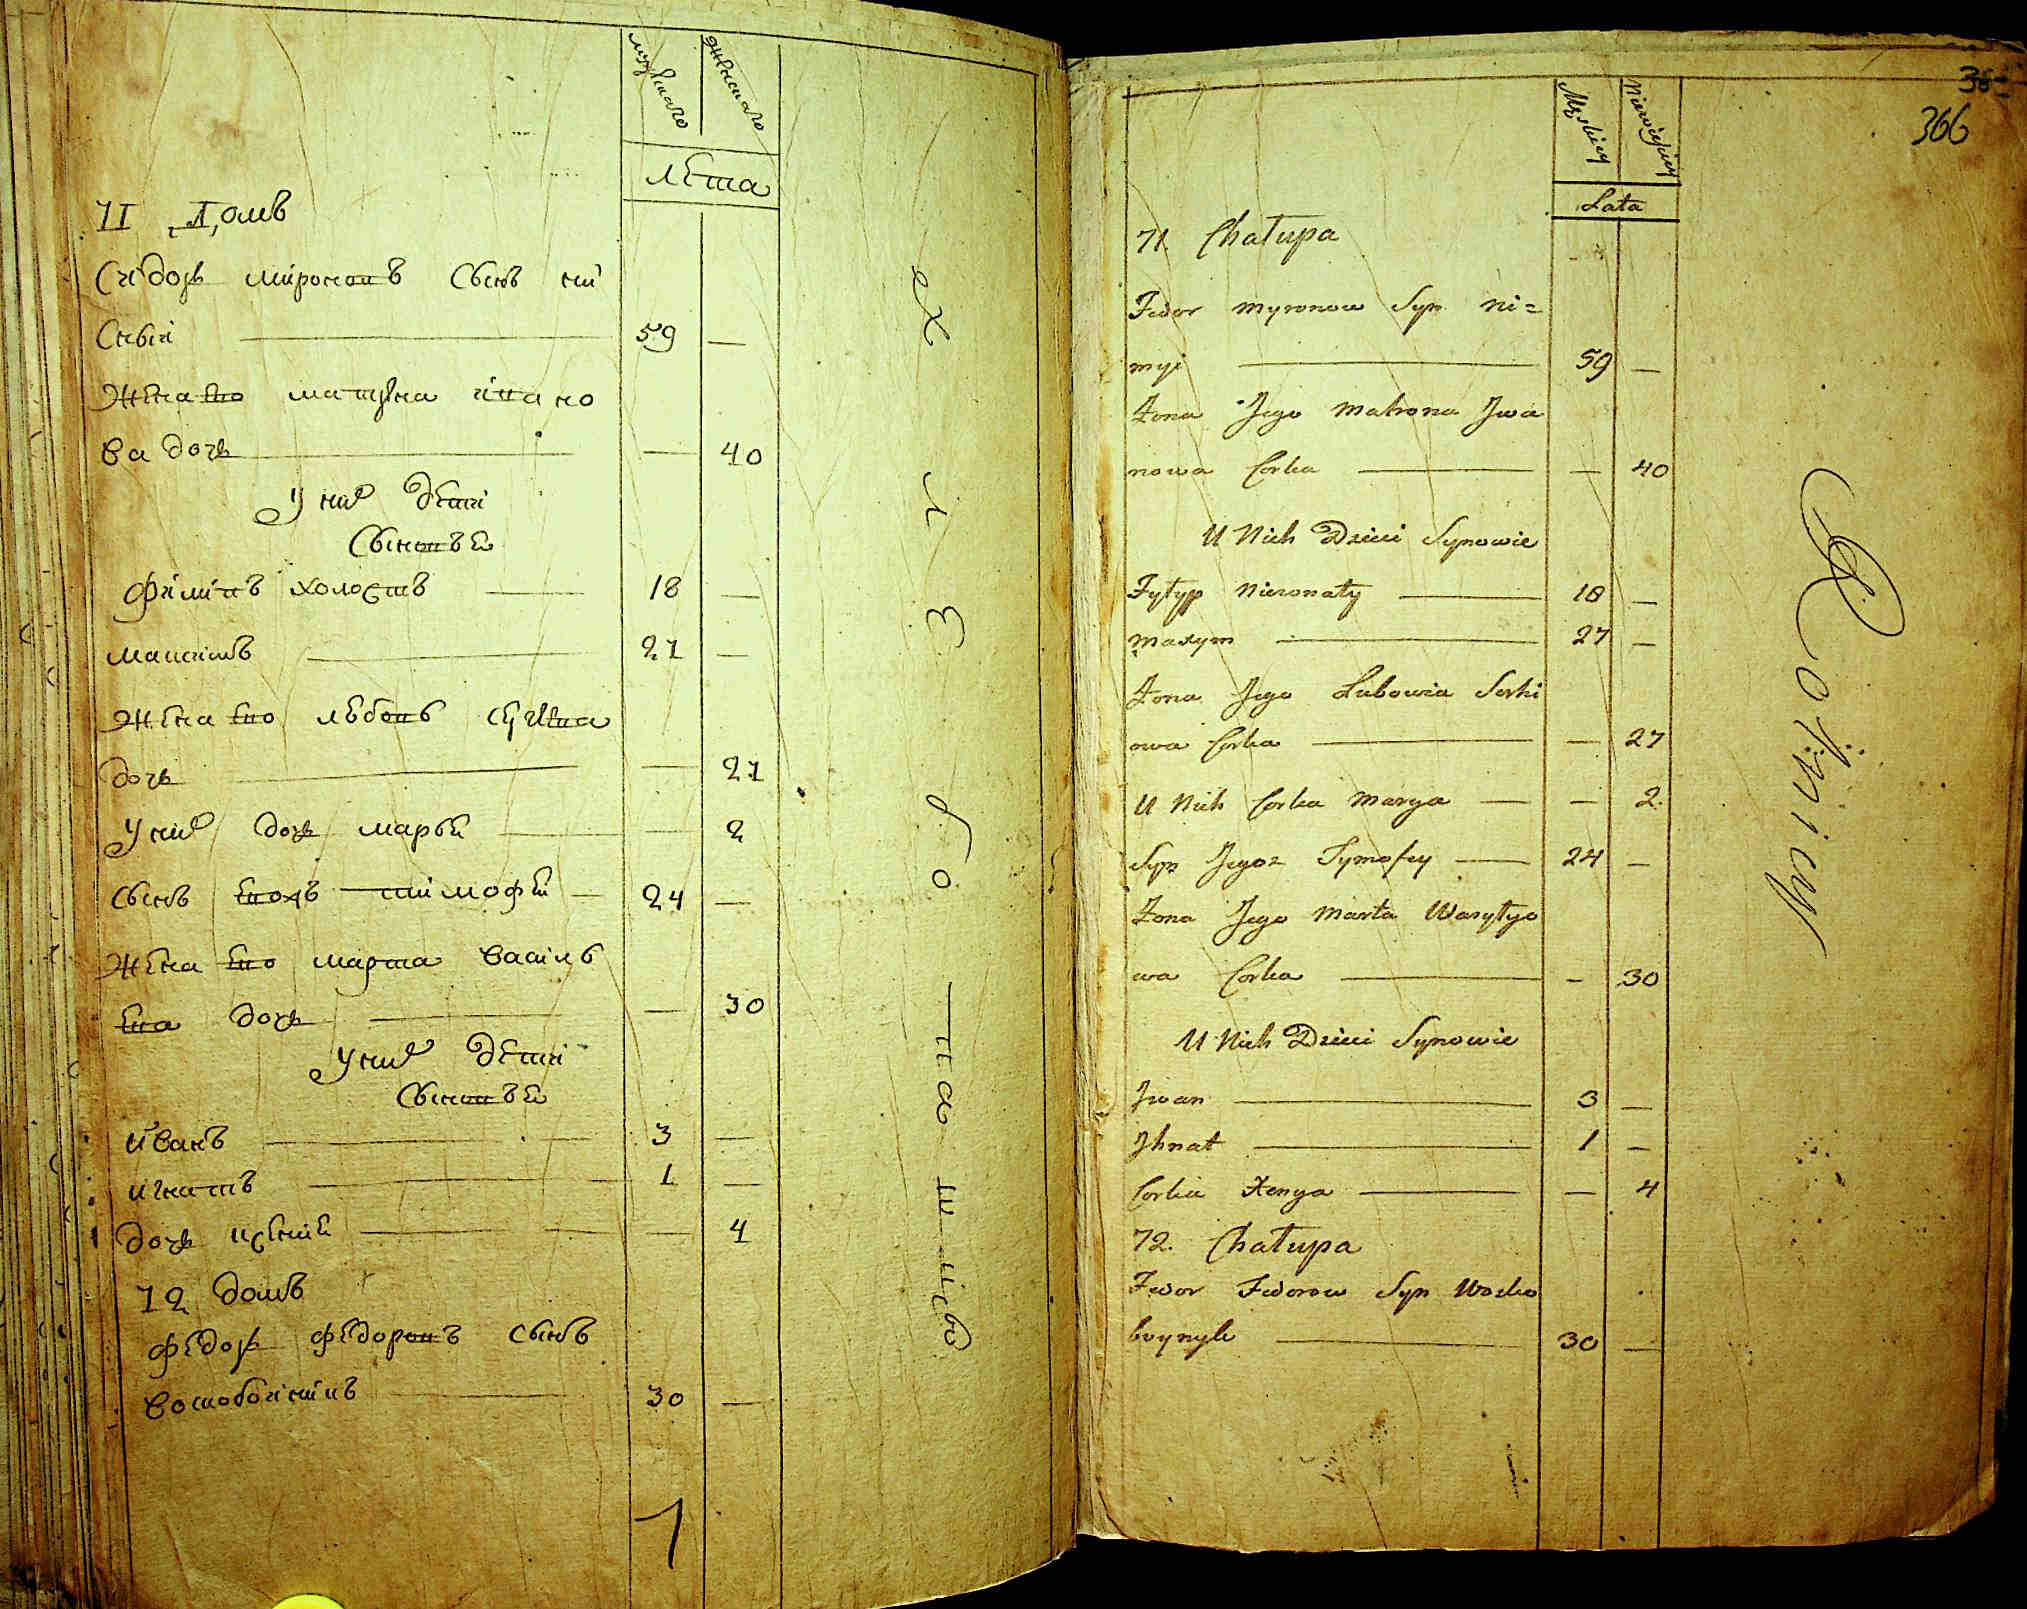 мужескаго женскаго
лѣта
71 Домъ
Сидоръ мироновъ Сынъ ни
жена его матрена ивано
ва дочь 40
У них дѣти
Сыновья
филипъ холостъ 18 —
максимъ 27 —
жена его любовь
дочь — 27
У них дочь марья — 2
Сынъ еговъ тимофей 24 —
жена его марта василь
ева дочь — 30
У них дѣти
Сыновья
иванъ 3 —
игнатъ 1 —
дочь — 4
72 домъ
федоръ федоровъ Сынъ
30 —
366
Męskiey Niewieskiey
Lata
71. Chałupa
Fedor Myronow Syn Ni=
59 —
Zona Jego Matrona Jwa
nowa Corka — 40
U Nich Dzieci Synowie
Fyłyp Niezonaty 18 —
Maxym 27 —
Zona Jego Lubowia Serhi
owa Corka — 27
U Nich Corka Marya — 2
Syn Jego Tymofey 24 —
Zona Jego Marta Wasyłyo
wa Corka — 30
U Nich Dzieci Synowie
Jwan 3 —
Jhnat 1 —
Corka Xenya — 4
72. Chałupa
Fedor Fedorow Syn Wosko
boynyk 30 —